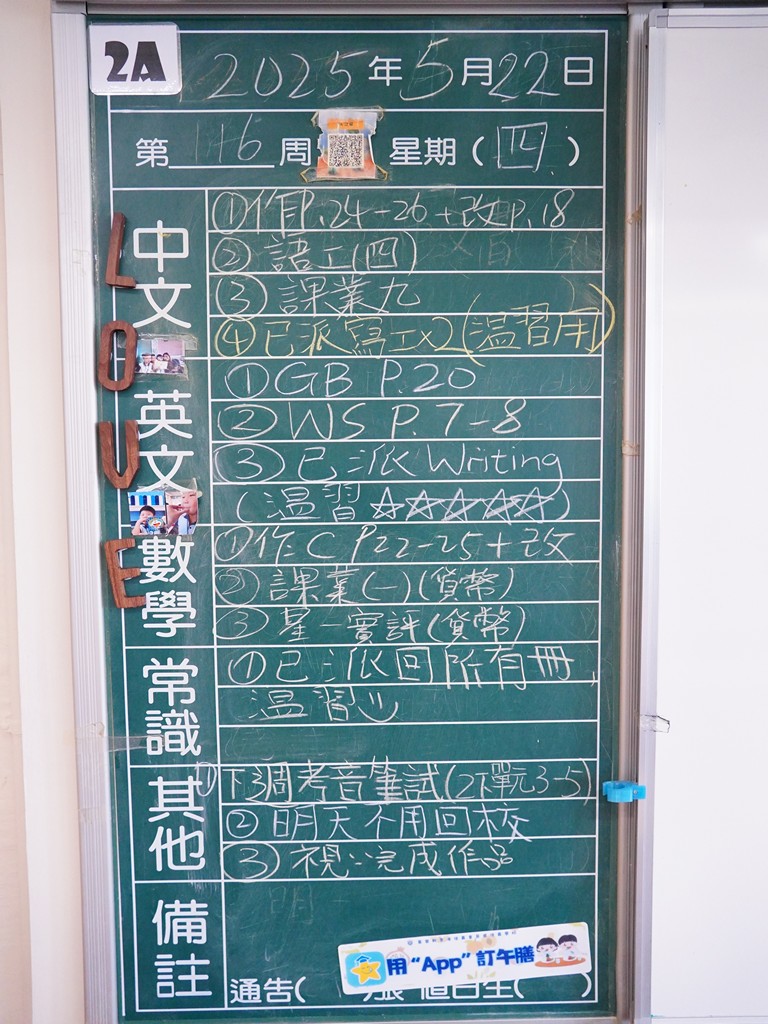 2A
2025年5月22日
第 116 周 星期(四)
L
O
V
E
中文
①作P.24-26+改P.18
②語工(四)
③課業九
④已派寫工x2(温習用)
英文
①GB P.20
②WS P.7-8
③已派Writing
(温習☆☆☆☆☆)
數學
①作C P22-25+改
②課業(一)(貨幣)
③星一實評(貨幣)
常識
①已派回所有冊,
温習
其他
①下3周考音筆試(2下單元3-5)
②明天不用回校
③視:完成作品
備註
用“App”訂午膳
通告( )張 值日生( )